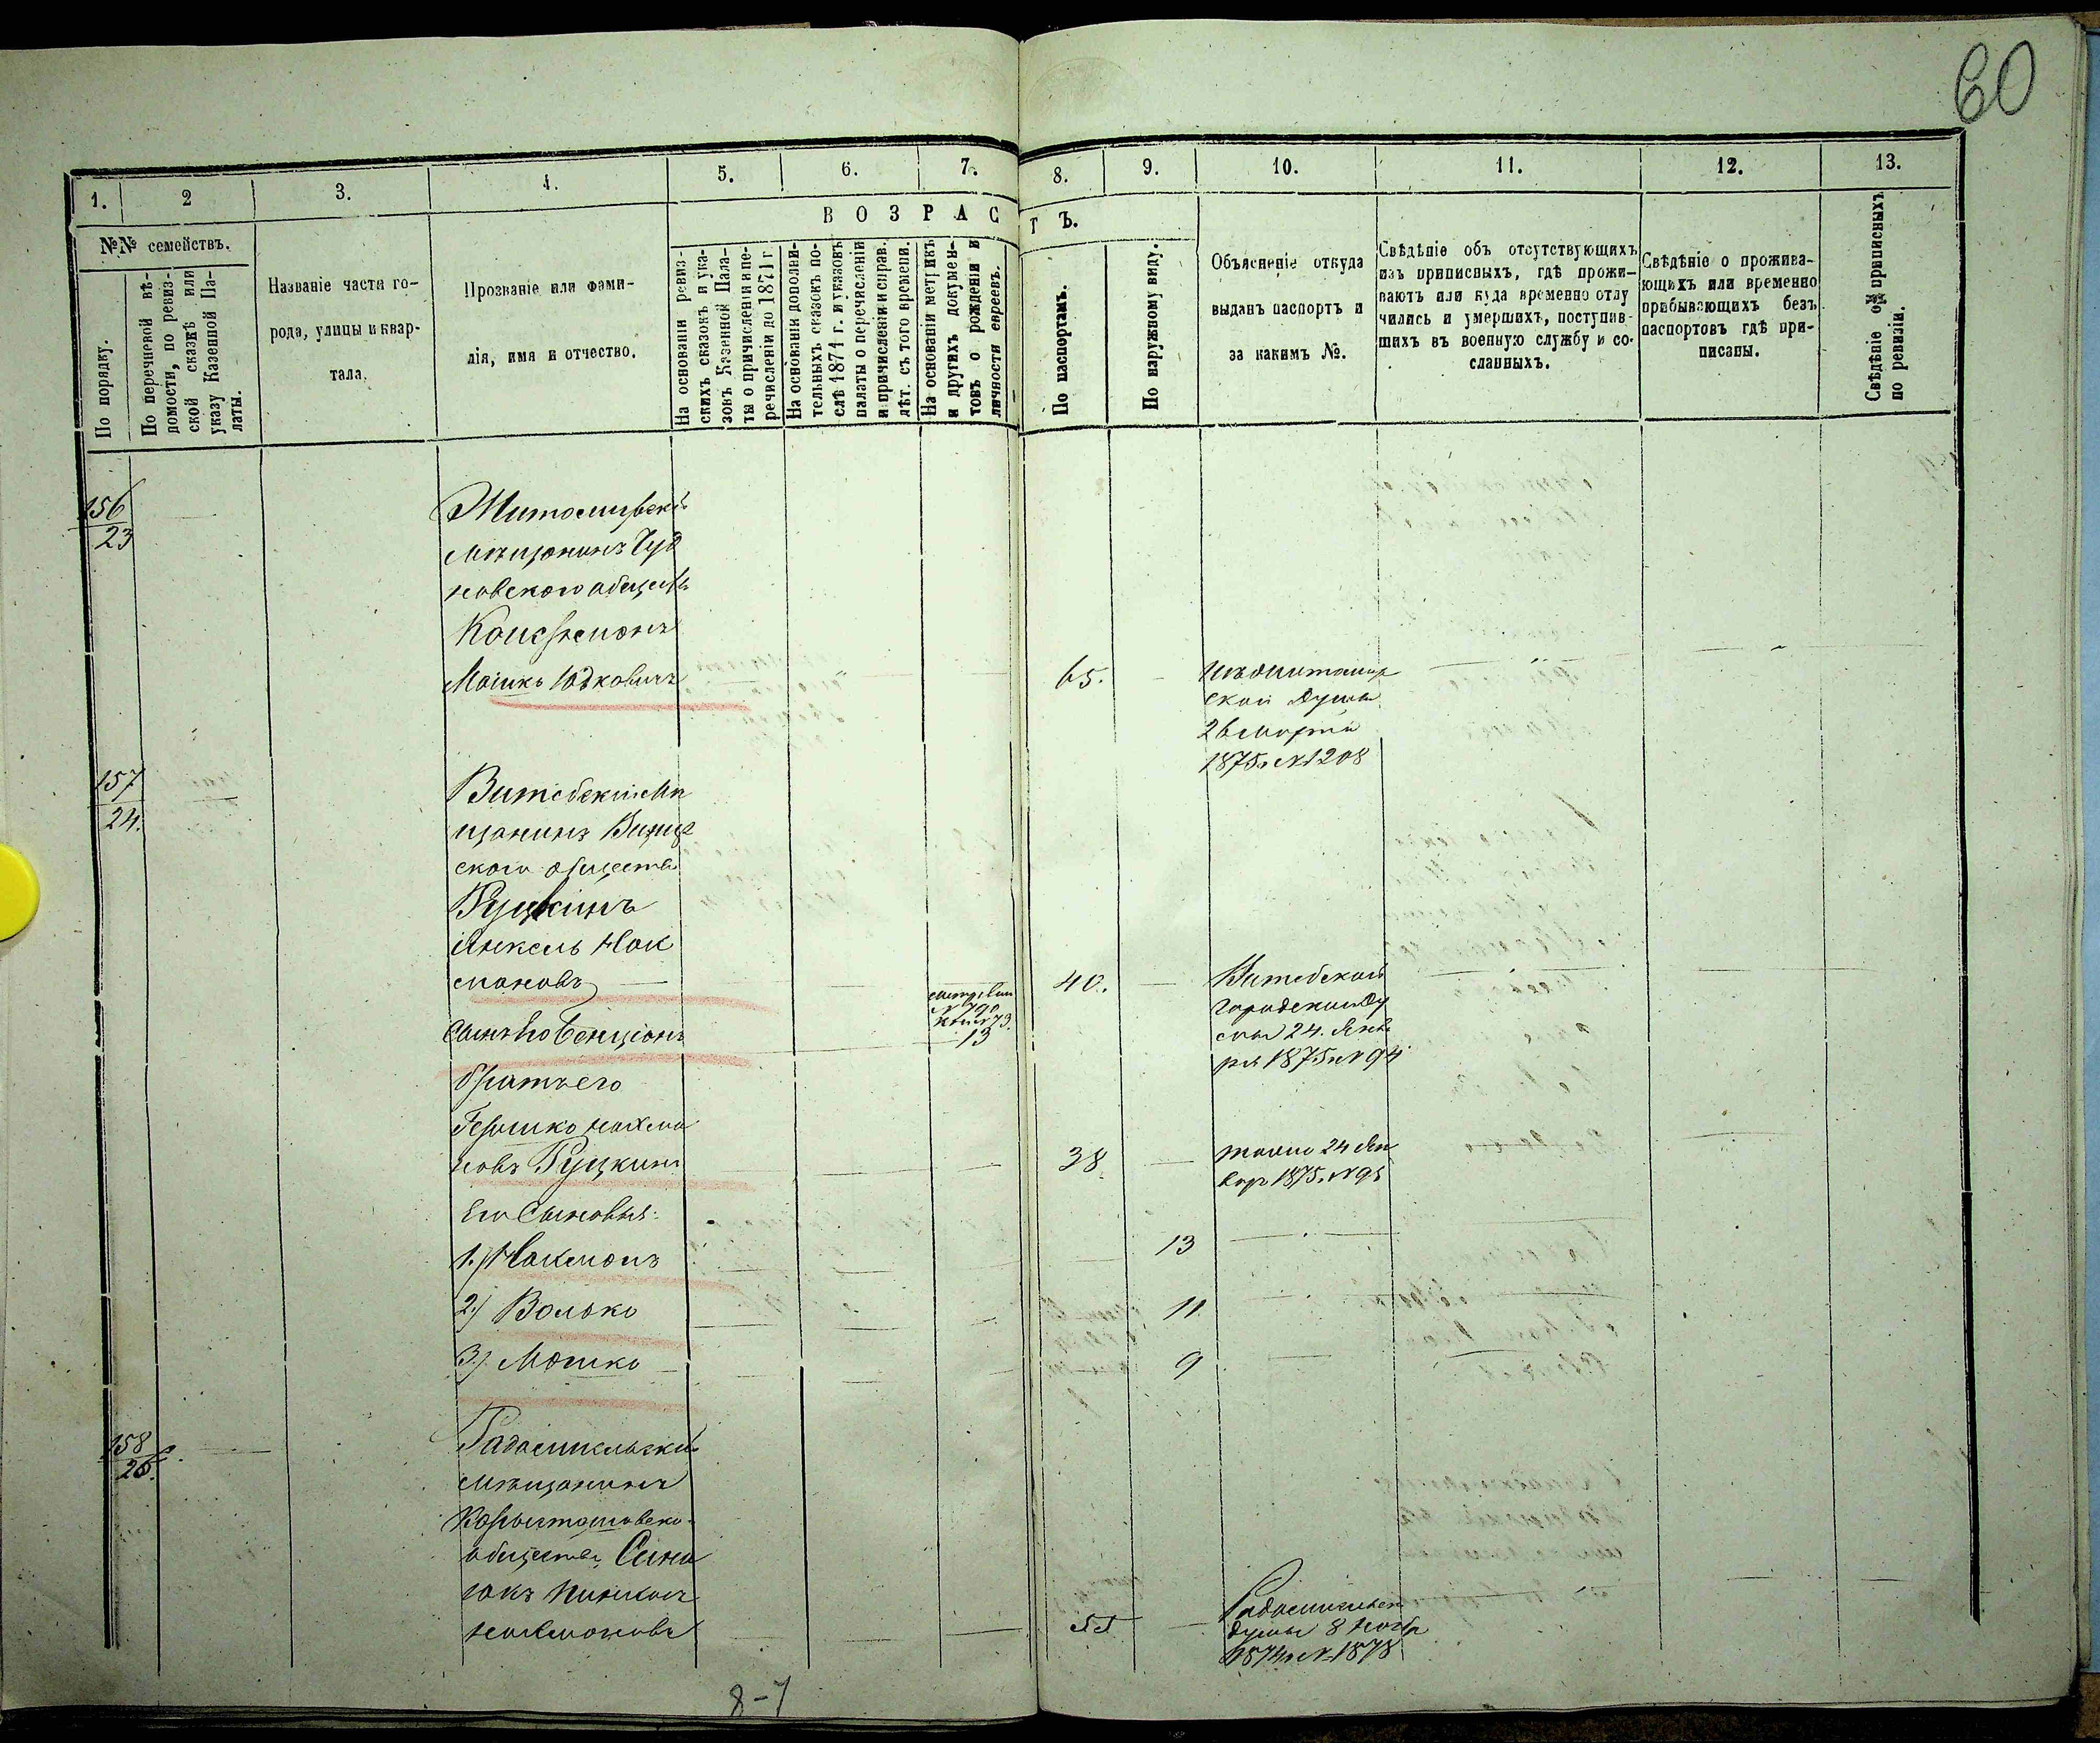 60
1.
2
3.
4.
5.
6.
7.
8.
9.
10.
11.
12.
13.
№№ семействъ.
По порядку.
По перечневой вѣ-
домости, по ревиз-
ской сказкѣ или
указу Казенной Па-
латы.
Названіе части го-
рода, улицы и квар-
тала.
Прозваніе или фами-
лія, имя и отчество.
ВОЗРАСТЪ.
На основаніи ревиз-
скихъ сказокъ и ука-
зовъ Казенной Пала-
ты о причисленіи и пе-
речисленіи до 1871 г.
На основаніи дополни-
тельныхъ сказокъ по-
слѣ 1871 г. и указовъ
палаты о перечисленіи
и причисленіи и справ.
лѣт. съ того времени.
На основаніи метрикъ
и другихъ докумен-
товъ о рожденіи и
личности евреевъ.
По паспортамъ.
По наружному виду.
Объясненіе откуда
выданъ паспортъ и
за какимъ №.
Свѣдѣніе объ отсутствующихъ
изъ приписныхъ, гдѣ прожи-
ваютъ или куда временно отлу
чились и умершихъ, поступив-
шихъ въ военную службу и со-
сланныхъ.
Свѣдѣніе о прожива-
ющихъ или временно
пребывающихъ безъ
паспортовъ гдѣ при-
писаны.
Свѣдѣніе объ приписныхъ
по ревизіи.
156
23
Житомирскій
мѣщанинъ Чуд
новскаго обществ
Мошко Юдковичъ
65.
Житомир
ской Думы
26 марта
1875 № 1208
157
24.
Витебскій Мѣ
щанинъ
скаго общества
Руцкинъ
Янкель Нах
мановъ
40.
Витебской
Городской Ду
мы 24 Янва
ря 1875 № 94
Сынъ его Бенціонъ
13
братъ его
Гершко Нахма
новъ Руцкинъ
38
тоже 24 Ян
варя 1875 № 95
Его Сыновья:
1.) Нахманъ
13
2.) Волько
11
3.) Мошко
9
158
25.
Радомысльскій
мѣщанинъ
Коростышевска
общества
Нахмановъ
55
Радомысльск
Думы 8 Нояб
1874 № 1878
8-7